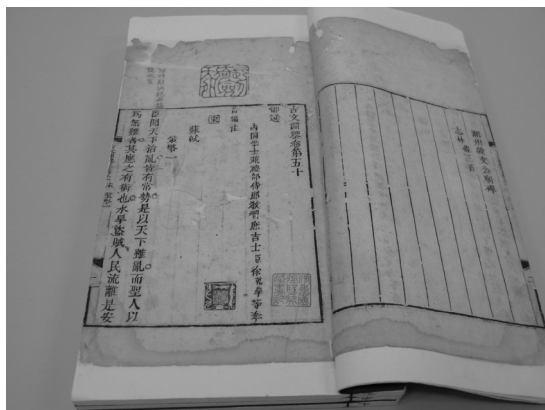 潮州韓文公廟碑
志林
古文淵鑒卷第五十
御選
內閣學士兼禮部侍郎教習庶吉士臣徐乾學等奉
旨編注
宋
蘇軾
策略一
臣聞天下治亂皆有常勢是以天下雖亂而聖人以
爲無難者其應之有術也水旱盜賊人民流離是安